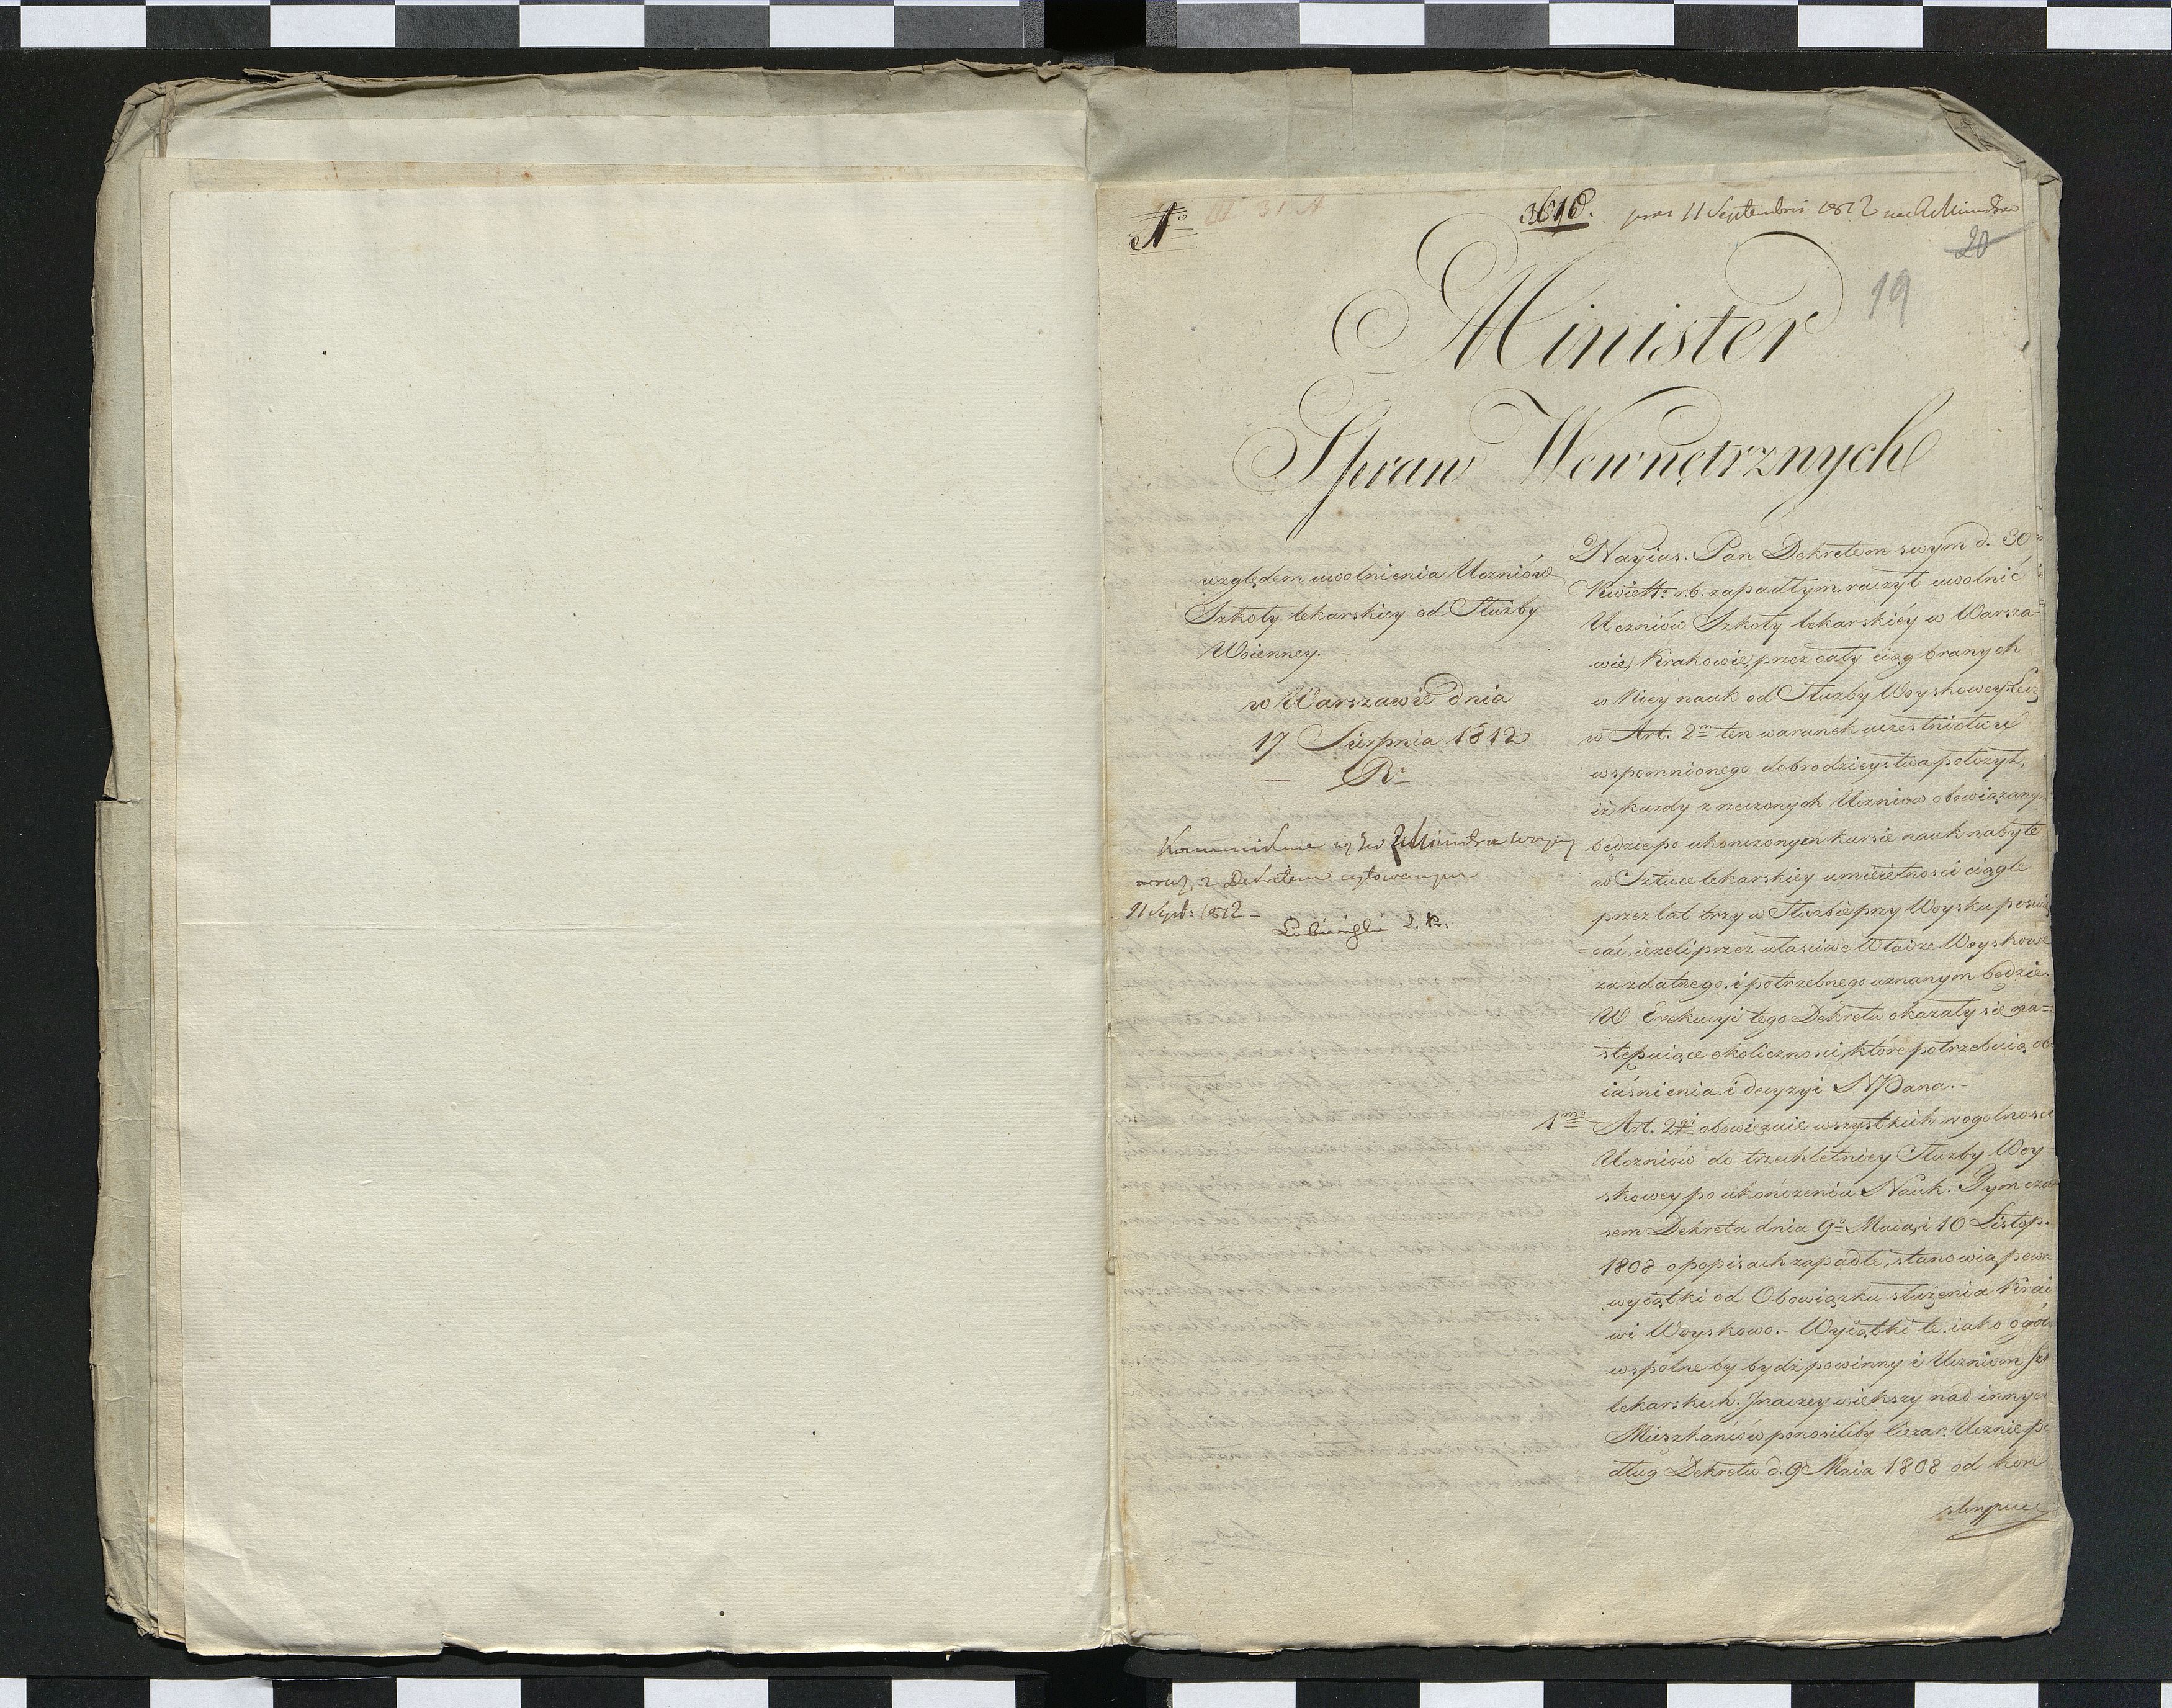 III 31 A
No
3610. pras 11 Septembris 1812
20
19
Minister
Spraw Wewnętrznych
względem uwolnienia Uczniów
Szkoły lekarskiey od Służby
Woienney. -
w Warszawie dnia
17 Sierpnia 1812
Rr
wraz z Dekretem cytowanym
11 Sept: 1812 -
Nayias. Pan Dekretem swym d. 30
Kwiett: r.b. zapadłym, raczył uwolnić
Uczniów Szkoły lekarskiéy w Warsza-
wie, Krakowie, przez cały ciąg branych
w Niey nauk od Służby Woyskowey, Lecz
w Art. 2m ten warunek uczestnictwu
wspomnionego dobrodzieystwa położył,
iż każdy z rzeczonych Uczniow obowiązany
będzie po ukonczonym kursie nauk nabyte
w Sztuce lekarskiey umieiętnosci ciągle
przez lat trzy w Służbie przy Woysku poswię
=cać, ieżeli przez właściwe Władze Woyskowe
za zdatnego i potrzebnego uznanym będzie.
W Exekucyi tego Dekretu okazały się na=
stępuiące okoliczności, które potrzebuią ob
iaśnienia i decyzyi NPana. -
1mo Art. 2gi obowięzuie wszystkich w ogolnosci
Uczniów do trzechletniey Służby Woy
skowey po ukończeniu Nauk. Tymcza
sem Dekreta dnia 9o Maia, i 10 Listop.
1808 o popisach zapadłe, stanowią pewn
wyiątki od Obowiązku służenia Krai
wi Woyskowo. - Wyiątki te iako ogól
wspólne by bydź powinny i Uczniom Sz
lekarskich. Inaczey większy nad innyc
Mieszkańców ponosiliby ciężar. Uczniе po
dług Dekretu d. 9 Maia 1808 od kon
skrypcyi